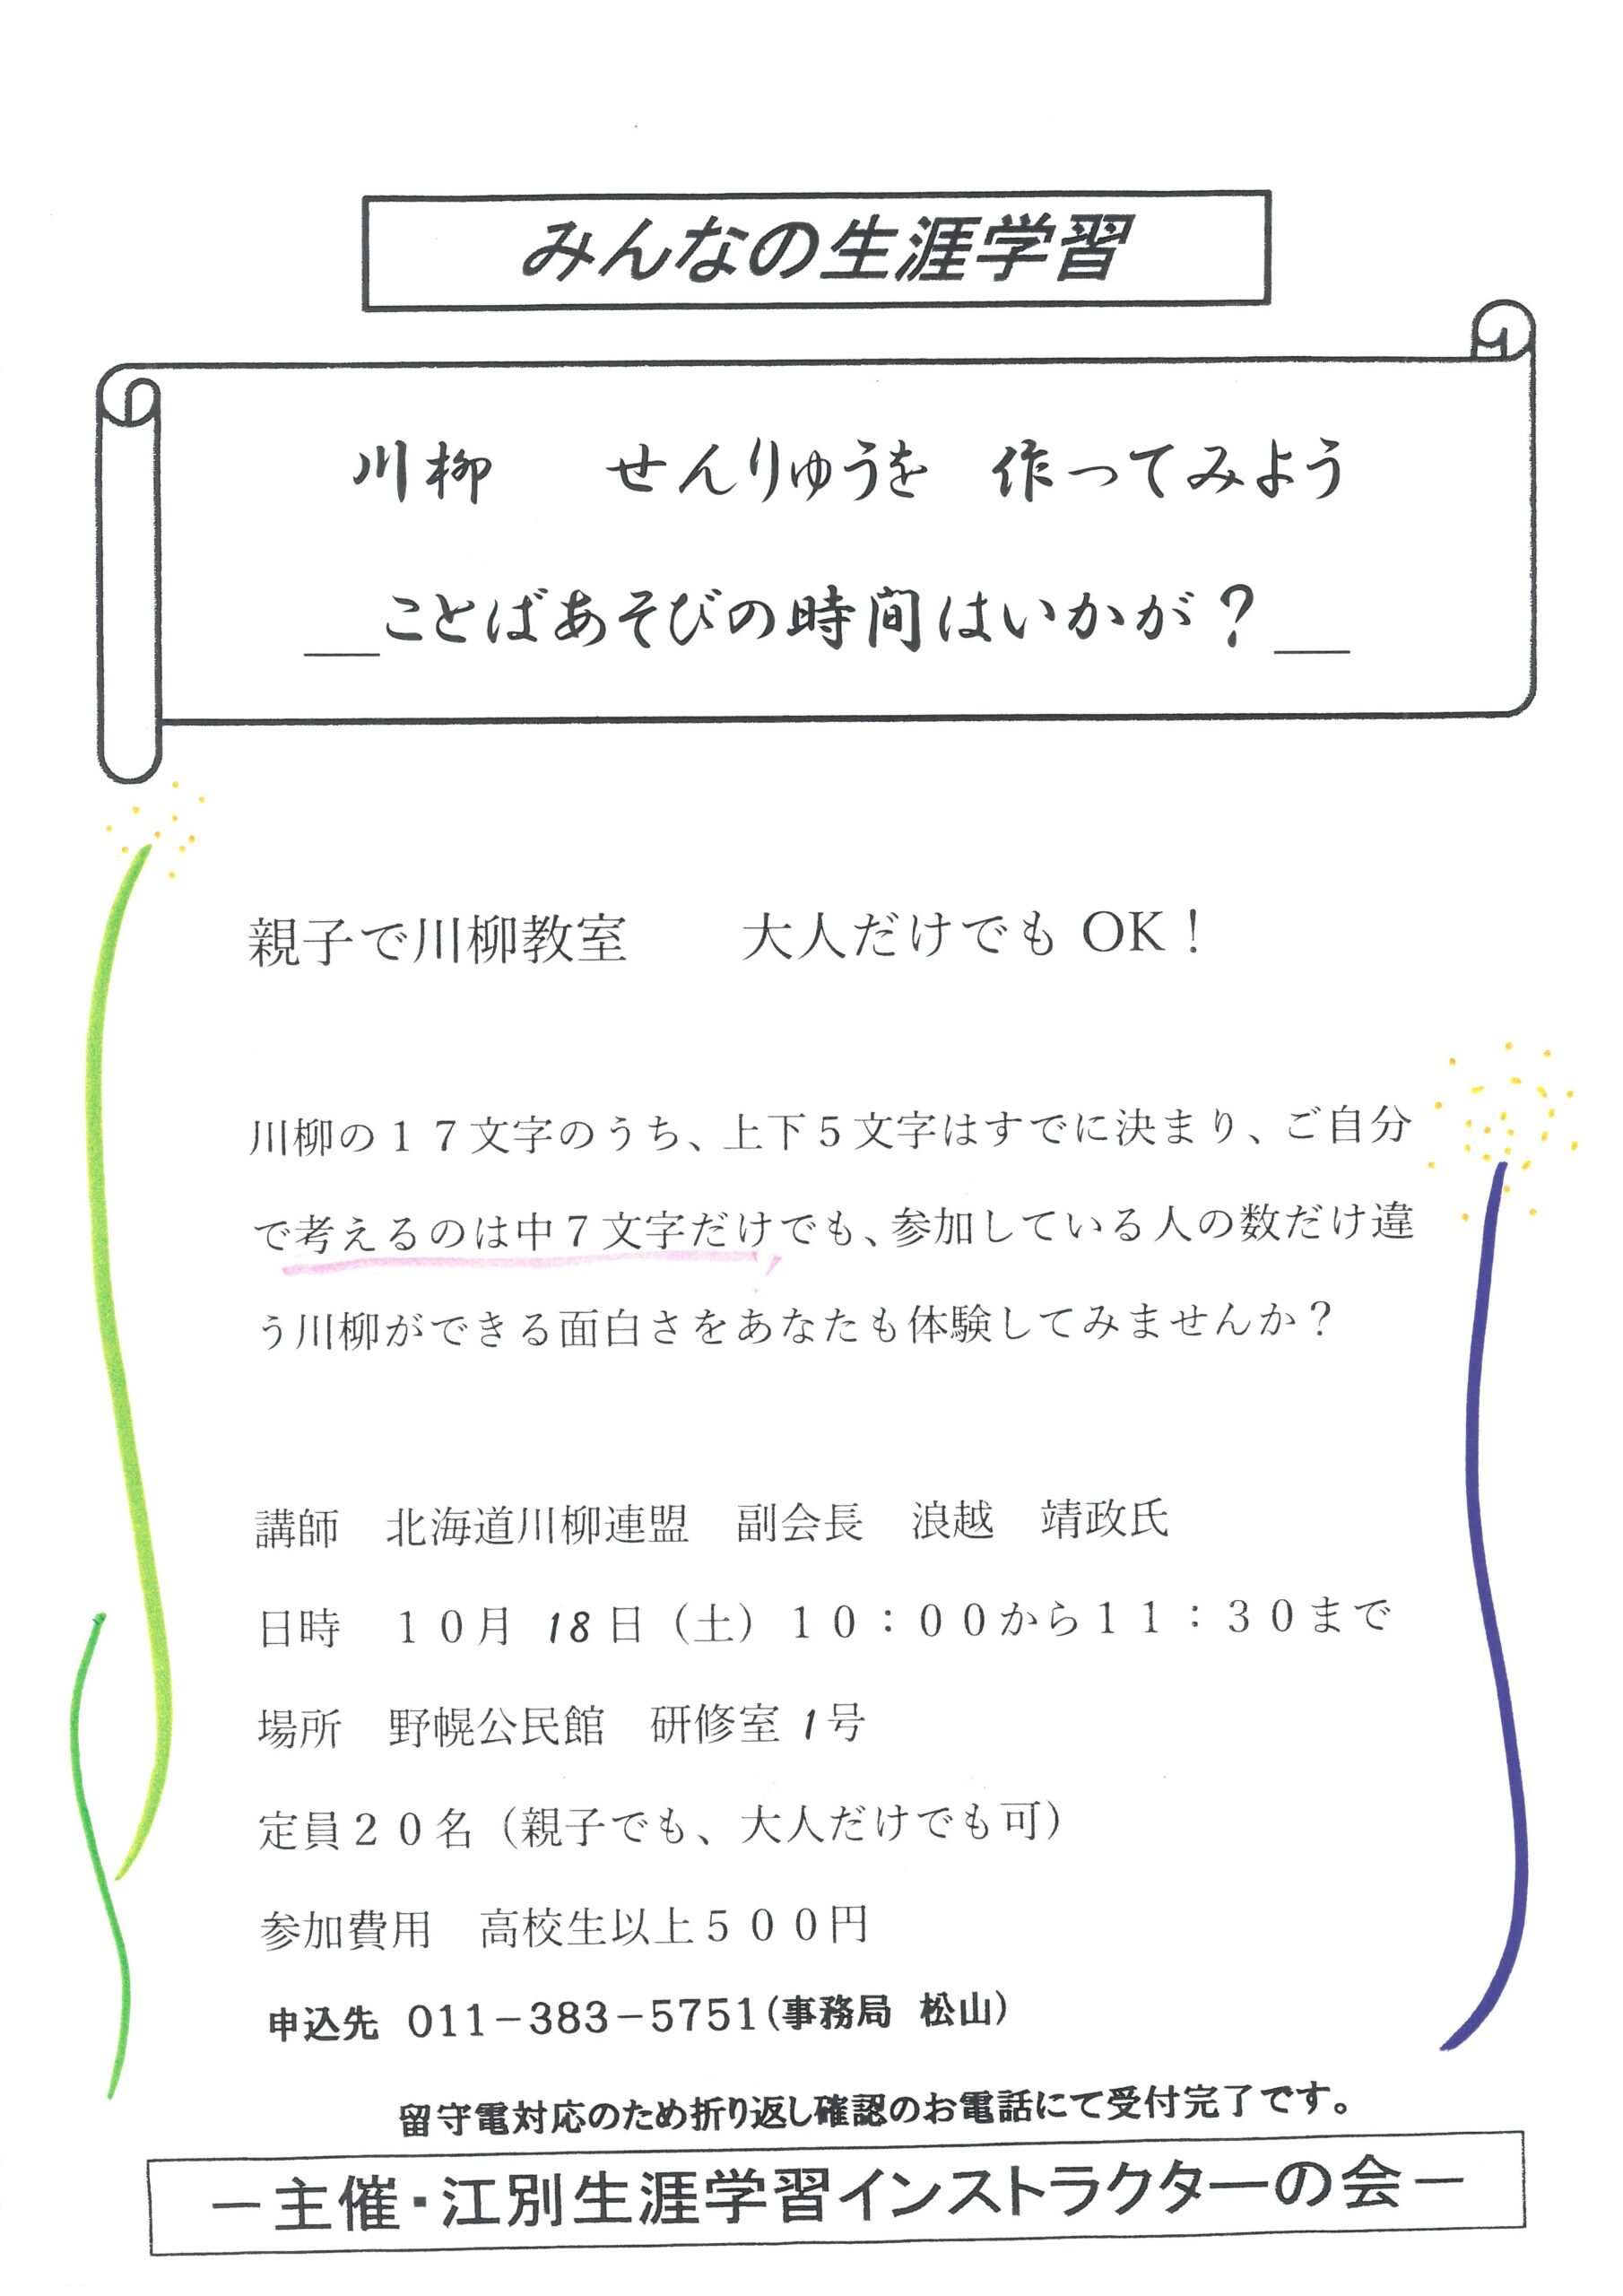 みんなの生涯学習
川柳　　せんりゅうを　作ってみよう
＿ことばあそびの時間はいかが？＿
親子で川柳教室　　大人だけでも OK！
川柳の１７文字のうち、上下５文字はすでに決まり、ご自分
で考えるのは中７文字だけでも、参加している人の数だけ違
う川柳ができる面白さをあなたも体験してみませんか？
講師　北海道川柳連盟　副会長　浪越　靖政氏
日時　１０月 18 日（土）１０：００から１１：３０まで
場所　野幌公民館　研修室 1 号
定員２０名（親子でも、大人だけでも可）
参加費用　高校生以上５００円
申込先　011－383－5751(事務局　松山)
留守電対応のため折り返し確認のお電話にて受付完了です。
－主催・江別生涯学習インストラクターの会－